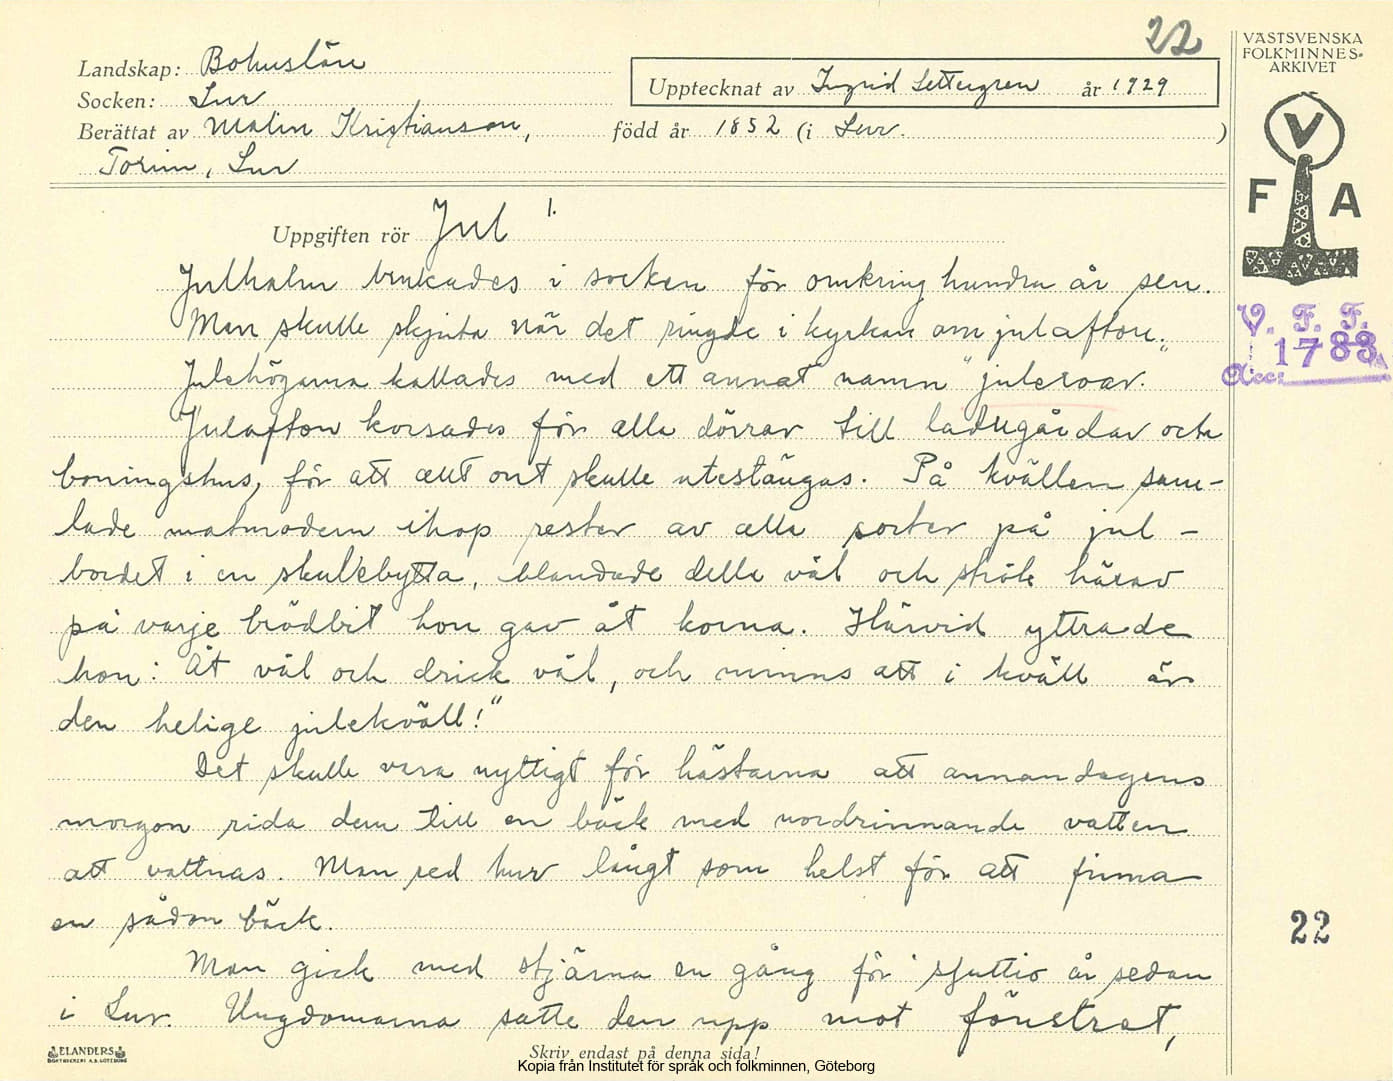 22
VÄSTSVENSKA
FOLKMINNES-
ARKIVET
Landskap: Bohuslän
Upptecknat av Ingrid Settergren år 1929
Socken: Lur
Berättat av Malin Kristianson, född år 1852 (i Lur. )
Torim, Lur
V
F A
Uppgiften rör Jul 1.
Julhalm brukades i socken för omkring hundra år sen.
Man skulle skjuta när det ringde i kyrkan om julafton.
V. F. F.
1783
Acc:
Julehögarna kallades med ett annat namn "juleroar."
Julafton korsades för alla dörrar till ladugårdar och
boningshus, för att allt ont skulle utestängas. På kvällen sam-
lade matmodern ihop rester av alla sorter på jul-
bordet i en skullebytta, blandade detta väl och strök härav
på varje brödbit hon gav åt korna. Härvid yttrade
hon: Ät väl och drick väl, och minns att i kväll är
den helige julekväll!"
Det skulle vara nyttigt för hästarna att annandagens
morgon rida dem till en bäck med nordrinnande vatten
att vattnas. Man red hur långt som helst för att finna
en sådan bäck.
22
Man gick med stjärna en gång för sjuttio år sedan
i Lur. Ungdomarna satte den upp mot fönstret,
ELANDERS
BOKTRYCKERI A.B. GÖTEBORG
Skriv endast på denna sida!
Kopia från Institutet för språk och folkminnen, Göteborg